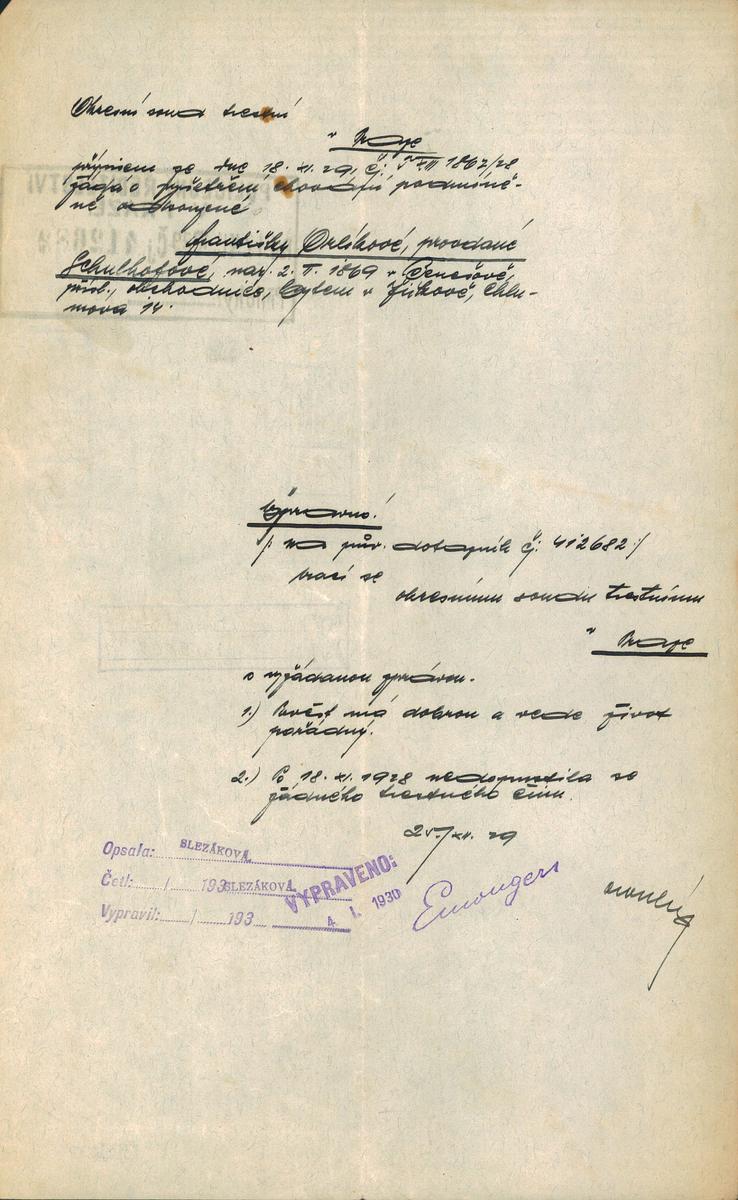 Okresní soud trestní
v Praze
přípisem ze dne 18. XI. 29, čj. T VIII 1867/28
žádá o vyšetření chování podmíně-
ně odsouzené
Františky Orlíkové, provdané
Schulhofové, nar. 2. V. 1869 v Benešově,
přísl., obchodnice, bytem v Žižkově, Chlu-
mova 14.
Správně!
/: na pův. dotazník čj. 412682 :/
vrací se
okresnímu soudu trestnímu
v Praze
s vyžádanou zprávou.
1.) Pověst má dobrou a vede život
pořádný.
2.) Po 18. XI. 1928 nedopustila se
žádného trestného činu.
25/XII. 29
Opsala: SLEZÁKOVÁ
Četl: / 193 SLEZÁKOVÁ
Vypravil: / 193
VYPRAVENO:
4. I. 1930